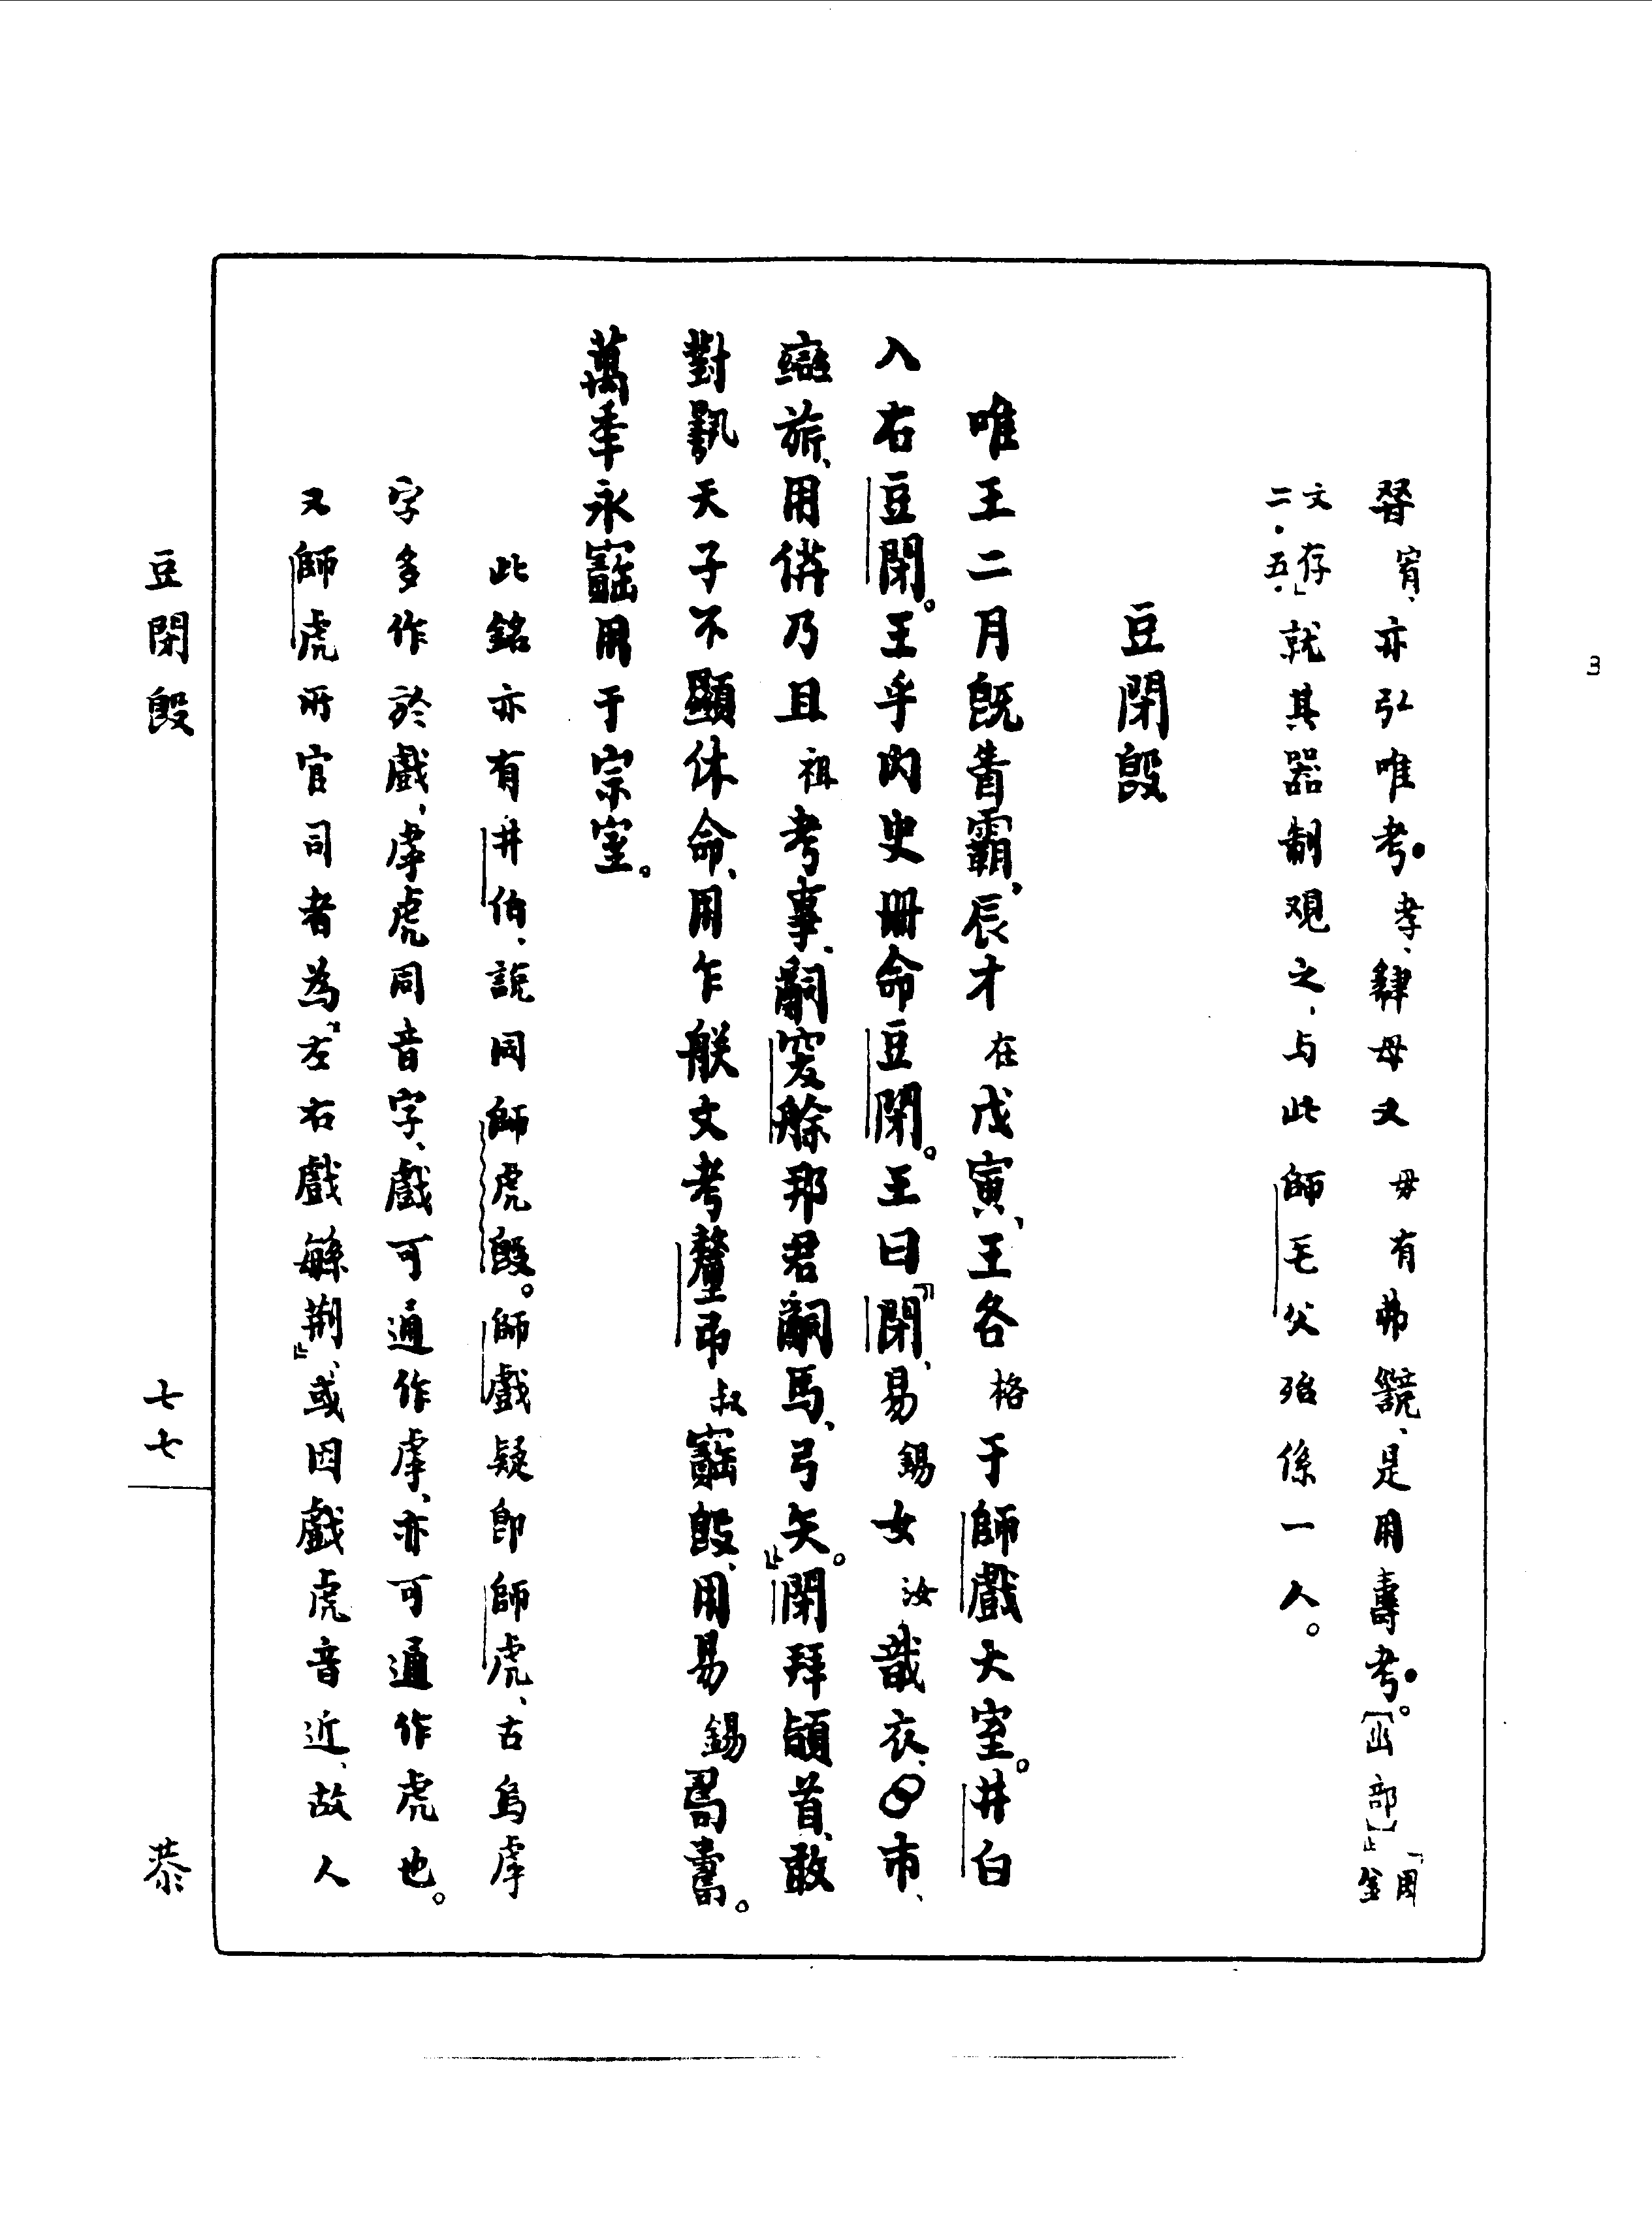 宥、亦弘唯考。孝、肆母又毋有弗、是用壽考。[幽部]」「周金
文存」二·五·就其器制观之，与此師毛父殆係一人。
豆閉𣪘
唯王二月既眚霸，辰才在戊寅，王各格于師戲大室。井白
入右豆閉。王乎内史冊命豆閉。王曰『閉，易錫女汝戠衣、市、
䜌旂，用倂乃且祖考事，𤔲俞邦君𤔲馬、弓矢。』閉拜䭫首，敢
對天子不顯休命，用乍朕文考釐弔叔𣪘，用易錫壽。
萬年永用于宗室。
此銘亦有井伯，說同師虎𣪘。師戲疑即師虎，古烏虖
字多作於戲，虖虎同音字，戲可通作虖，亦可通作虎也。
又師虎所官司者為『左右戲緐荆』，或因戲虎音近，故人
豆閉𣪘
七七
恭
3